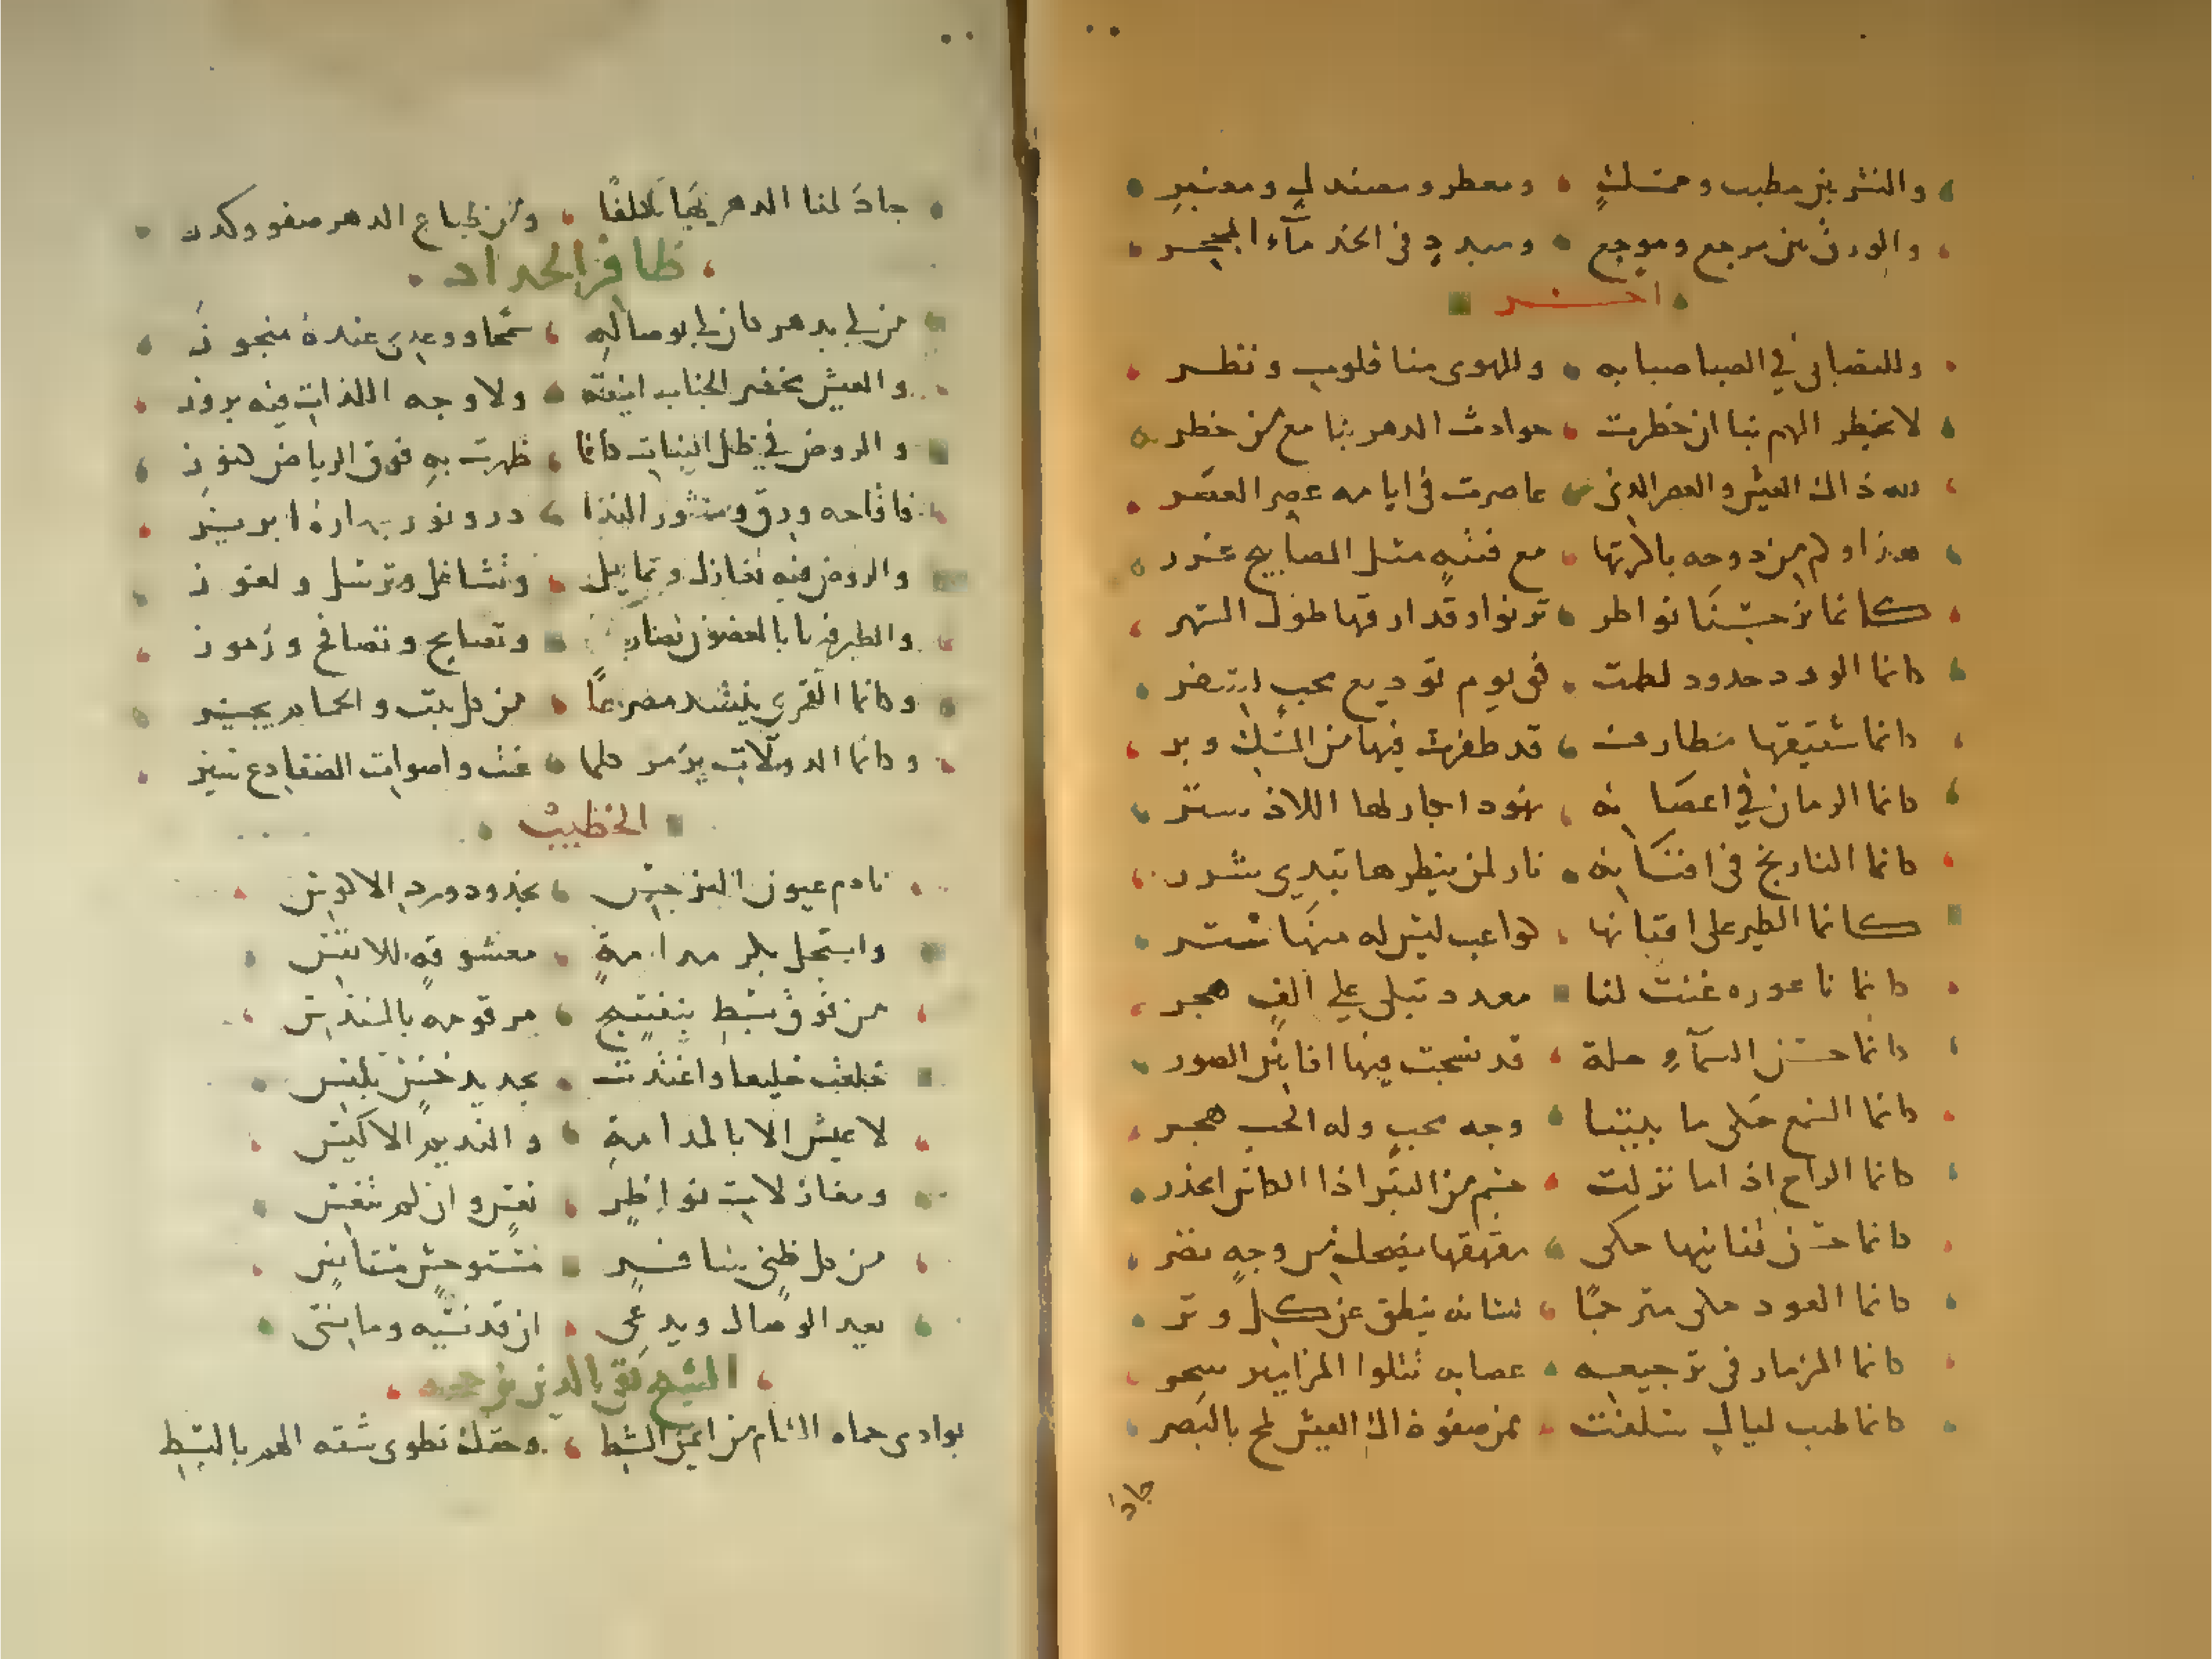 والنشر بين مطيب وممسك ومعطر ومصندل ومعنبر
والورق بين مرجع وموجع ومبدد في الخد ماء المحجر
اخر
وللتصابي في الصبا صبابه وللهوى منا قلوب ونظر
لا يخطر الهم بنا ان خطرت حوادث الدهر بنا مع من خطر
لله ذاك العيش والعصر الذي عاصرت في ايامه عصر العصر
هذا وكم من دوحه باكرتها مع فتية مثل المصابيح غرر
كانما نرجسنا نواظر ترنو وقد ارقها طول السهر
كانما الورد خدود لطمت في يوم توديع محب لسفر
كانما شقيقها مطارف قد طفرت فيها من المسك وبر
كانما الرمان في اغصانه نهود ابكار لها اللاذ ستر
كانما النارنج في افنانه نار لمن ينظرها تبدي شرر
كانما الطير على افنانها كواعب ليس له منها ستر
كانما ناعوره غنت لنا معدد تبكي على الف هجر
كانما حسن السماء حلة قد نسجت فيها افانين الصور
كانما الشمع حكى ما بيننا وجه محب وله الحب هجر
كانما الراح اذا ما نزلت جسم من التبر اذا الكاس انحدر
كانما حسن قنانيها حكى مقهقها يضحك من وجه نضر
كانما العود حكى مترجما لسانه ينطق عن كل وتر
كانما المزمار في ترجيعه عصابه تتلوا المزامير سحر
كانما طيب ليال سلفت من صفوة العيش لمح بالبصر
جاد
جاد لنا الدهر بها تكلفا ومن طباع الدهر صفو وكدر
ظافر الحداد
من لي بدهر كان لي بوصاله سمحا ووعدي عنده منجوز
والعيش مخضر الجناب انيقه ولاوجه اللذات فيه بروز
والروض في حلل النبات كانما ظهرت به فوق الرياض كنوز
فاقاحه ورق ومنثور الندا در ونور بهاره ابريز
والروض فيه تغازل وتمايل وتشاغل وترسل ولغوز
والطير فيها بالغصون تصايح وتصافح ورموز
وكانما القمري ينشد مصرعا من كل بيت والحمام يجيز
وكانما الدولاب يزمر كلما غنت واصوات الضفادع شيز
الخطيب
نادم عيون النرجس بخدود ورد الاكوس
واستجل بكر مدامة معشوقة للانفس
من فوق بسط بنفسج مرقومه بالسندس
خلعت خليعا واغتدت بجديد حسن تلبس
لا عيش الا بالمدامة والنديم الاكيس
ومغازلات نواظر نعس وان لم تنعس
من كل ظبي نافر مستوحش متانس
يعد الوصال ويدعي ان قد نسيه وما نسي
الشيخ تقي الدين بن حجه
بوادي حماه الشام من ايمن الشط وحقك تطوى شقه الهم بالبسط